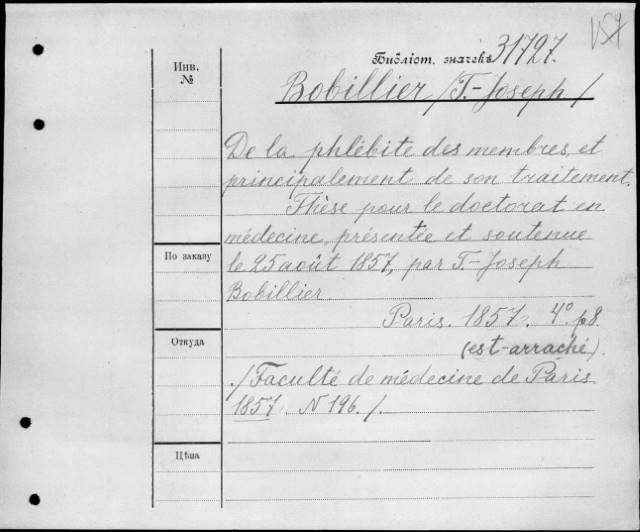 V57
Библіот. значекъ 31727.
Инв.
№
Bobillier /T.-Joseph/
De la phlébite des membres, et
principalement de son traitement.
Thèse pour le doctorat en
médecine, présentée et soutenue
По заказу
le 25 août 1857, par T.-Joseph
Bobillier
Paris. 1857. 4° p8.
Откуда
(est-arraché).
/Faculté de médecine de Paris
1857. N 196./.
Цѣна